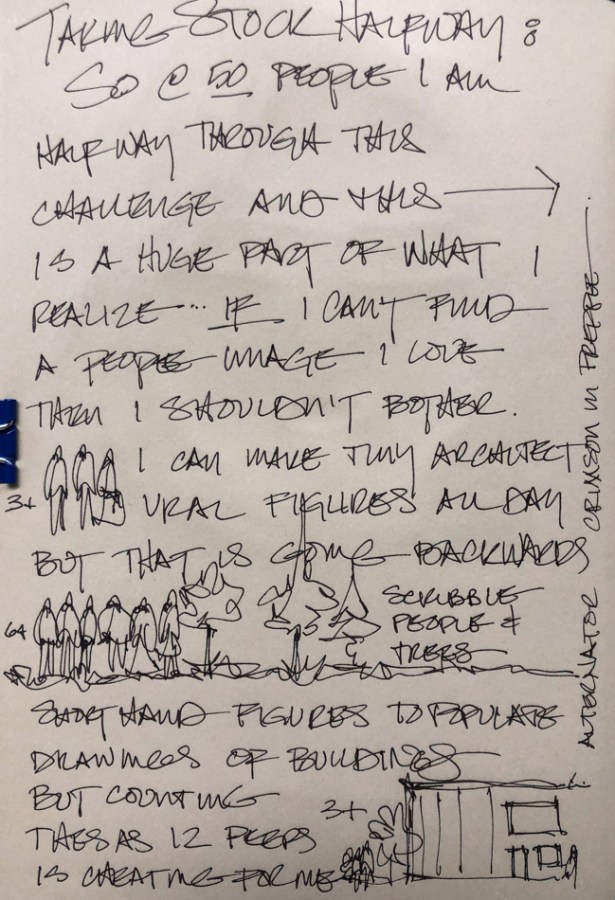 TAKING STOCK HALFWAY:
SO @ 50 PEOPLE I AM
HALFWAY THROUGH THIS
CHALLENGE AND THIS
IS A HUGE PART OF WHAT I
REALIZE... IF I CAN'T FIND
A PEOPLE IMAGE I LOVE
THEN I SHOULDN'T BOTHER.
I CAN MAKE TINY ARCHITECT
3+ URAL FIGURES ALL DAY
BUT THAT IS GOING BACKWARDS
SCRIBBLE
6+ PEOPLE &
TREES
SHORT HAND FIGURES TO POPULATE
DRAWINGS OF BUILDINGS
BUT COUNTING
3+
THES AS 12 PEEPS
IS CHEATING FOR ME
ALTERNATOR CRIMSON IN PREPPIE